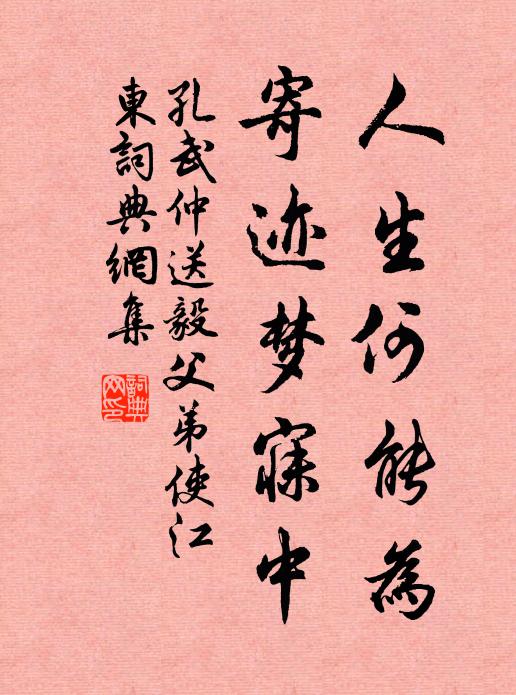 人生何能為
寄迹梦寐中
孔武仲送毅父弟使江
東詞典網集
詞典
网印